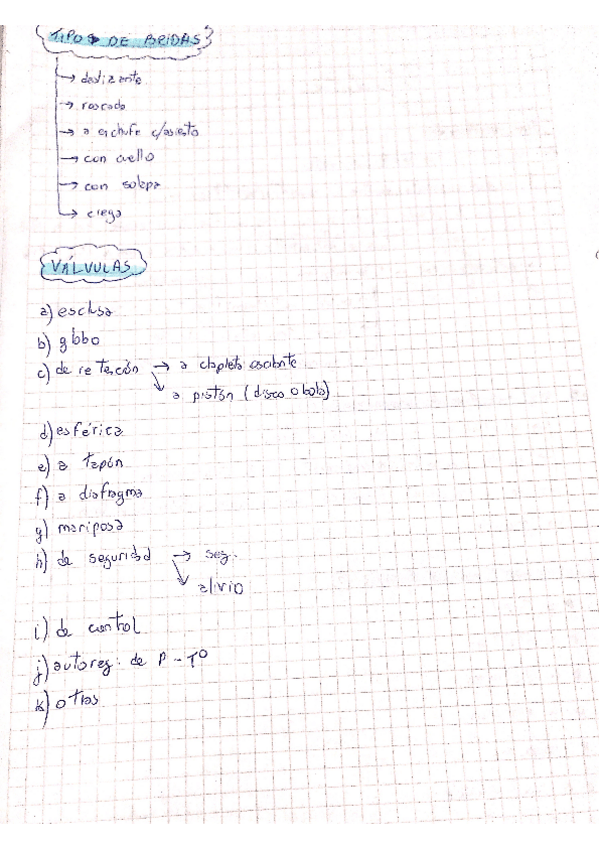 TIPOS DE BRIDAS
→ deslizante
→ roscada
→ a enchufe c/asiento
→ con cuello
→ con solapa
→ ciega
VÁLVULAS
a) esclusa
b) globo
c) de retención → a clapeta oscilante
↘ a pistón (disco o bola)
d) esférica
e) a tapón
f) a diafragma
g) mariposa
h) de seguridad → seg.
↘ alivio
i) de control
j) autoreg. de P - Tº
k) otras